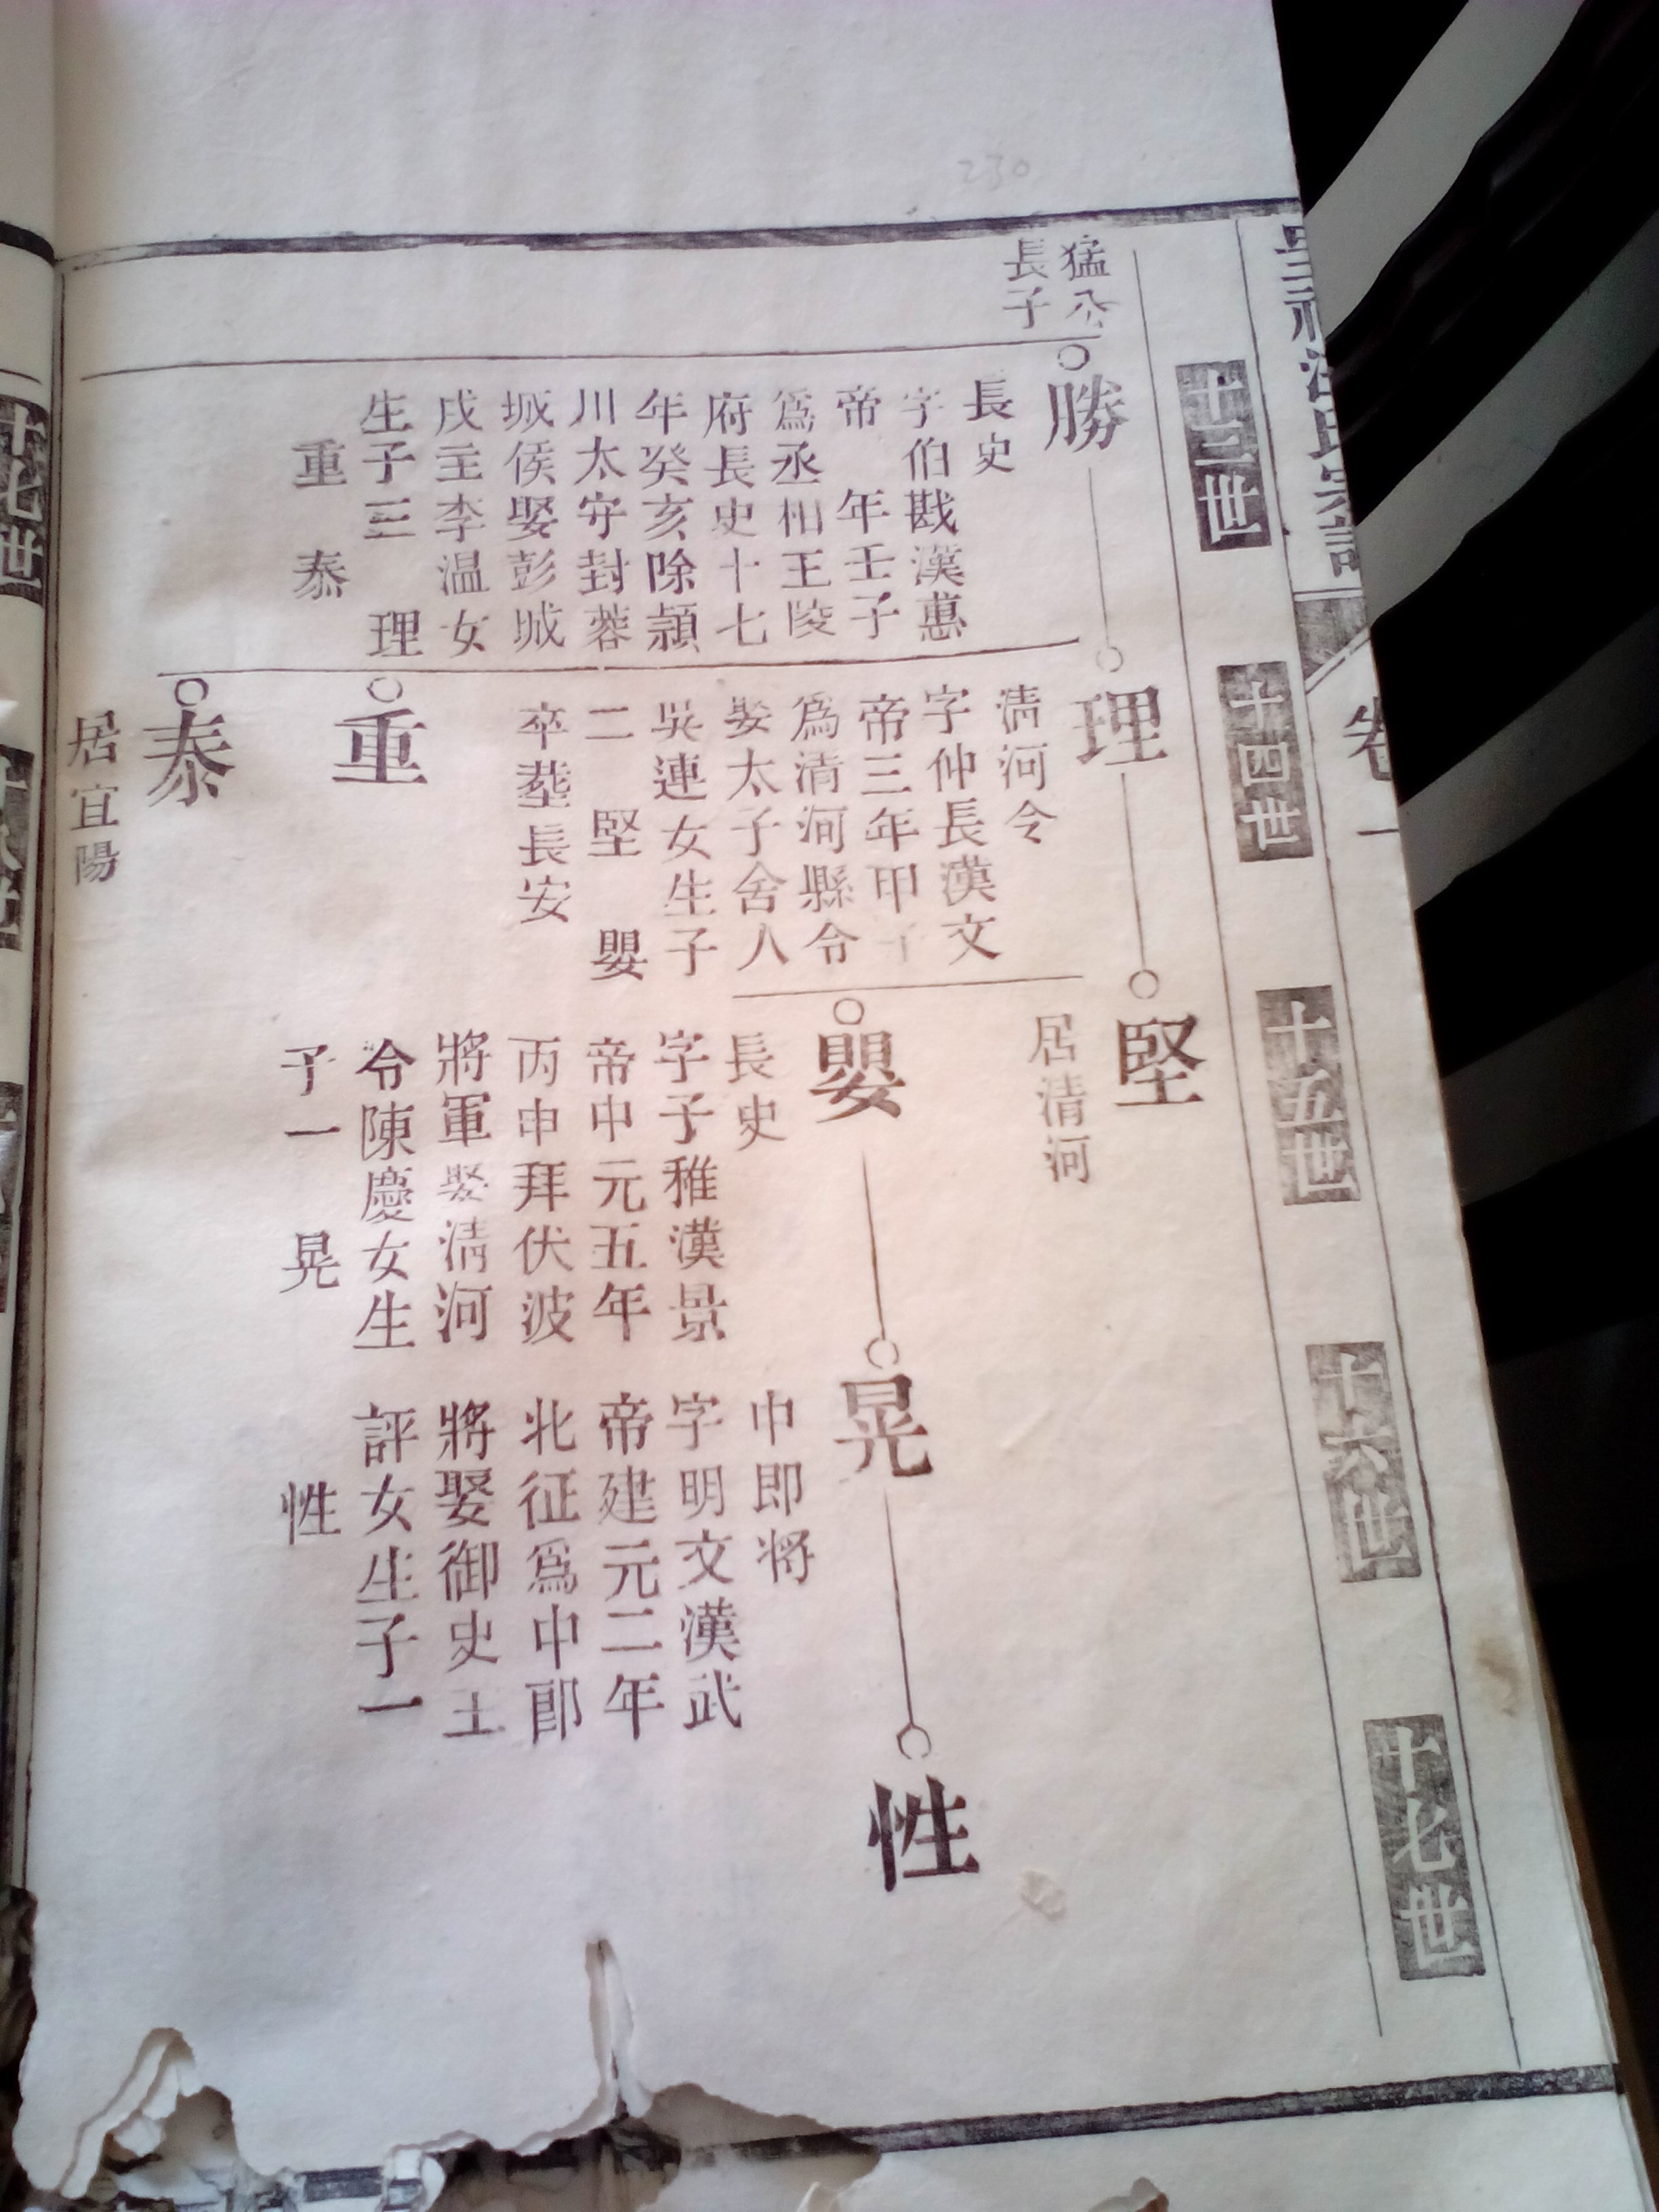 230
汪氏宗譜
卷一
十三世
十四世
十五世
十六世
十七世
猛公
長子
勝
長史
字伯戡漢惠
帝 年壬子
爲丞相王陵
府長史十七
年癸亥除潁
川太守封蓉
城侯娶彭城
戌主李温女
生子三 理
重 泰
理
淸河令
字仲長漢文
帝三年甲子
爲清河縣令
娶太子舍人
吳連女生子
二 堅 嬰
卒塟長安
重
泰
居宜陽
堅
居清河
嬰
長史
字子稚漢景
帝中元五年
丙申拜伏波
將軍娶淸河
令陳慶女生
子一 晃
晃
中郎将
字明文漢武
帝建元二年
北征爲中郎
將娶御史王
評女生子一
性
性
十七世